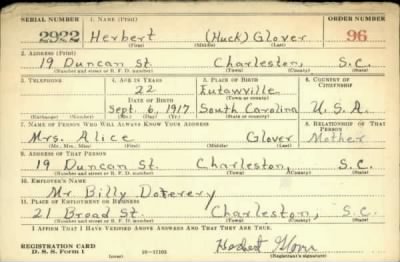 SERIAL NUMBER 1. NAME (Print) ORDER NUMBER
2922 Herbert (Huck) Glover 96
(First) (Middle) (Last)
2. ADDRESS (Print)
19 Duncan St. Charleston, S.C.
(Number and street or R. F. D. number) (Town) (County) (State)
3. TELEPHONE 4. AGE IN YEARS 5. PLACE OF BIRTH 6. COUNTRY OF CITIZENSHIP
22 Eutawville
DATE OF BIRTH (Town or county)
Sept. 6, 1917 South Carolina U.S.A.
(Exchange) (Number) (Mo.) (Day) (Yr.) (State or country)
7. NAME OF PERSON WHO WILL ALWAYS KNOW YOUR ADDRESS 8. RELATIONSHIP OF THAT PERSON
Mrs. Alice Glover Mother
(Mr., Mrs., Miss) (First) (Middle) (Last)
9. ADDRESS OF THAT PERSON
19 Duncan St. Charleston, S.C.
(Number and street or R. F. D. number) (Town) (County) (State)
10. EMPLOYER'S NAME
Mr. Billy
11. PLACE OF EMPLOYMENT OR BUSINESS
21 Broad St. Charleston, S.C.
(Number and street or R. F. D. number) (Town) (County) (State)
I AFFIRM THAT I HAVE VERIFIED ABOVE ANSWERS AND THAT THEY ARE TRUE.
REGISTRATION CARD
D. S. S. Form 1 Herbert Glover
(Registrant's signature)